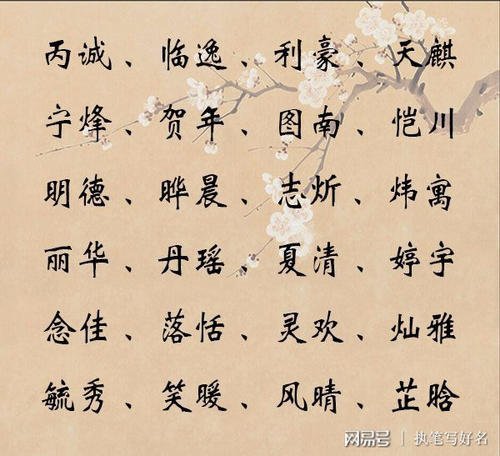 丙诚、临逸、利豪、天麒
宁烽、贺年、图南、恺川
明德、晔晨、志炘、炜寓
丽华、丹瑶、夏清、婷宇
念佳、落恬、灵欢、灿雅
毓秀、笑暖、风晴、芷晗
网易号 | 执笔写好名